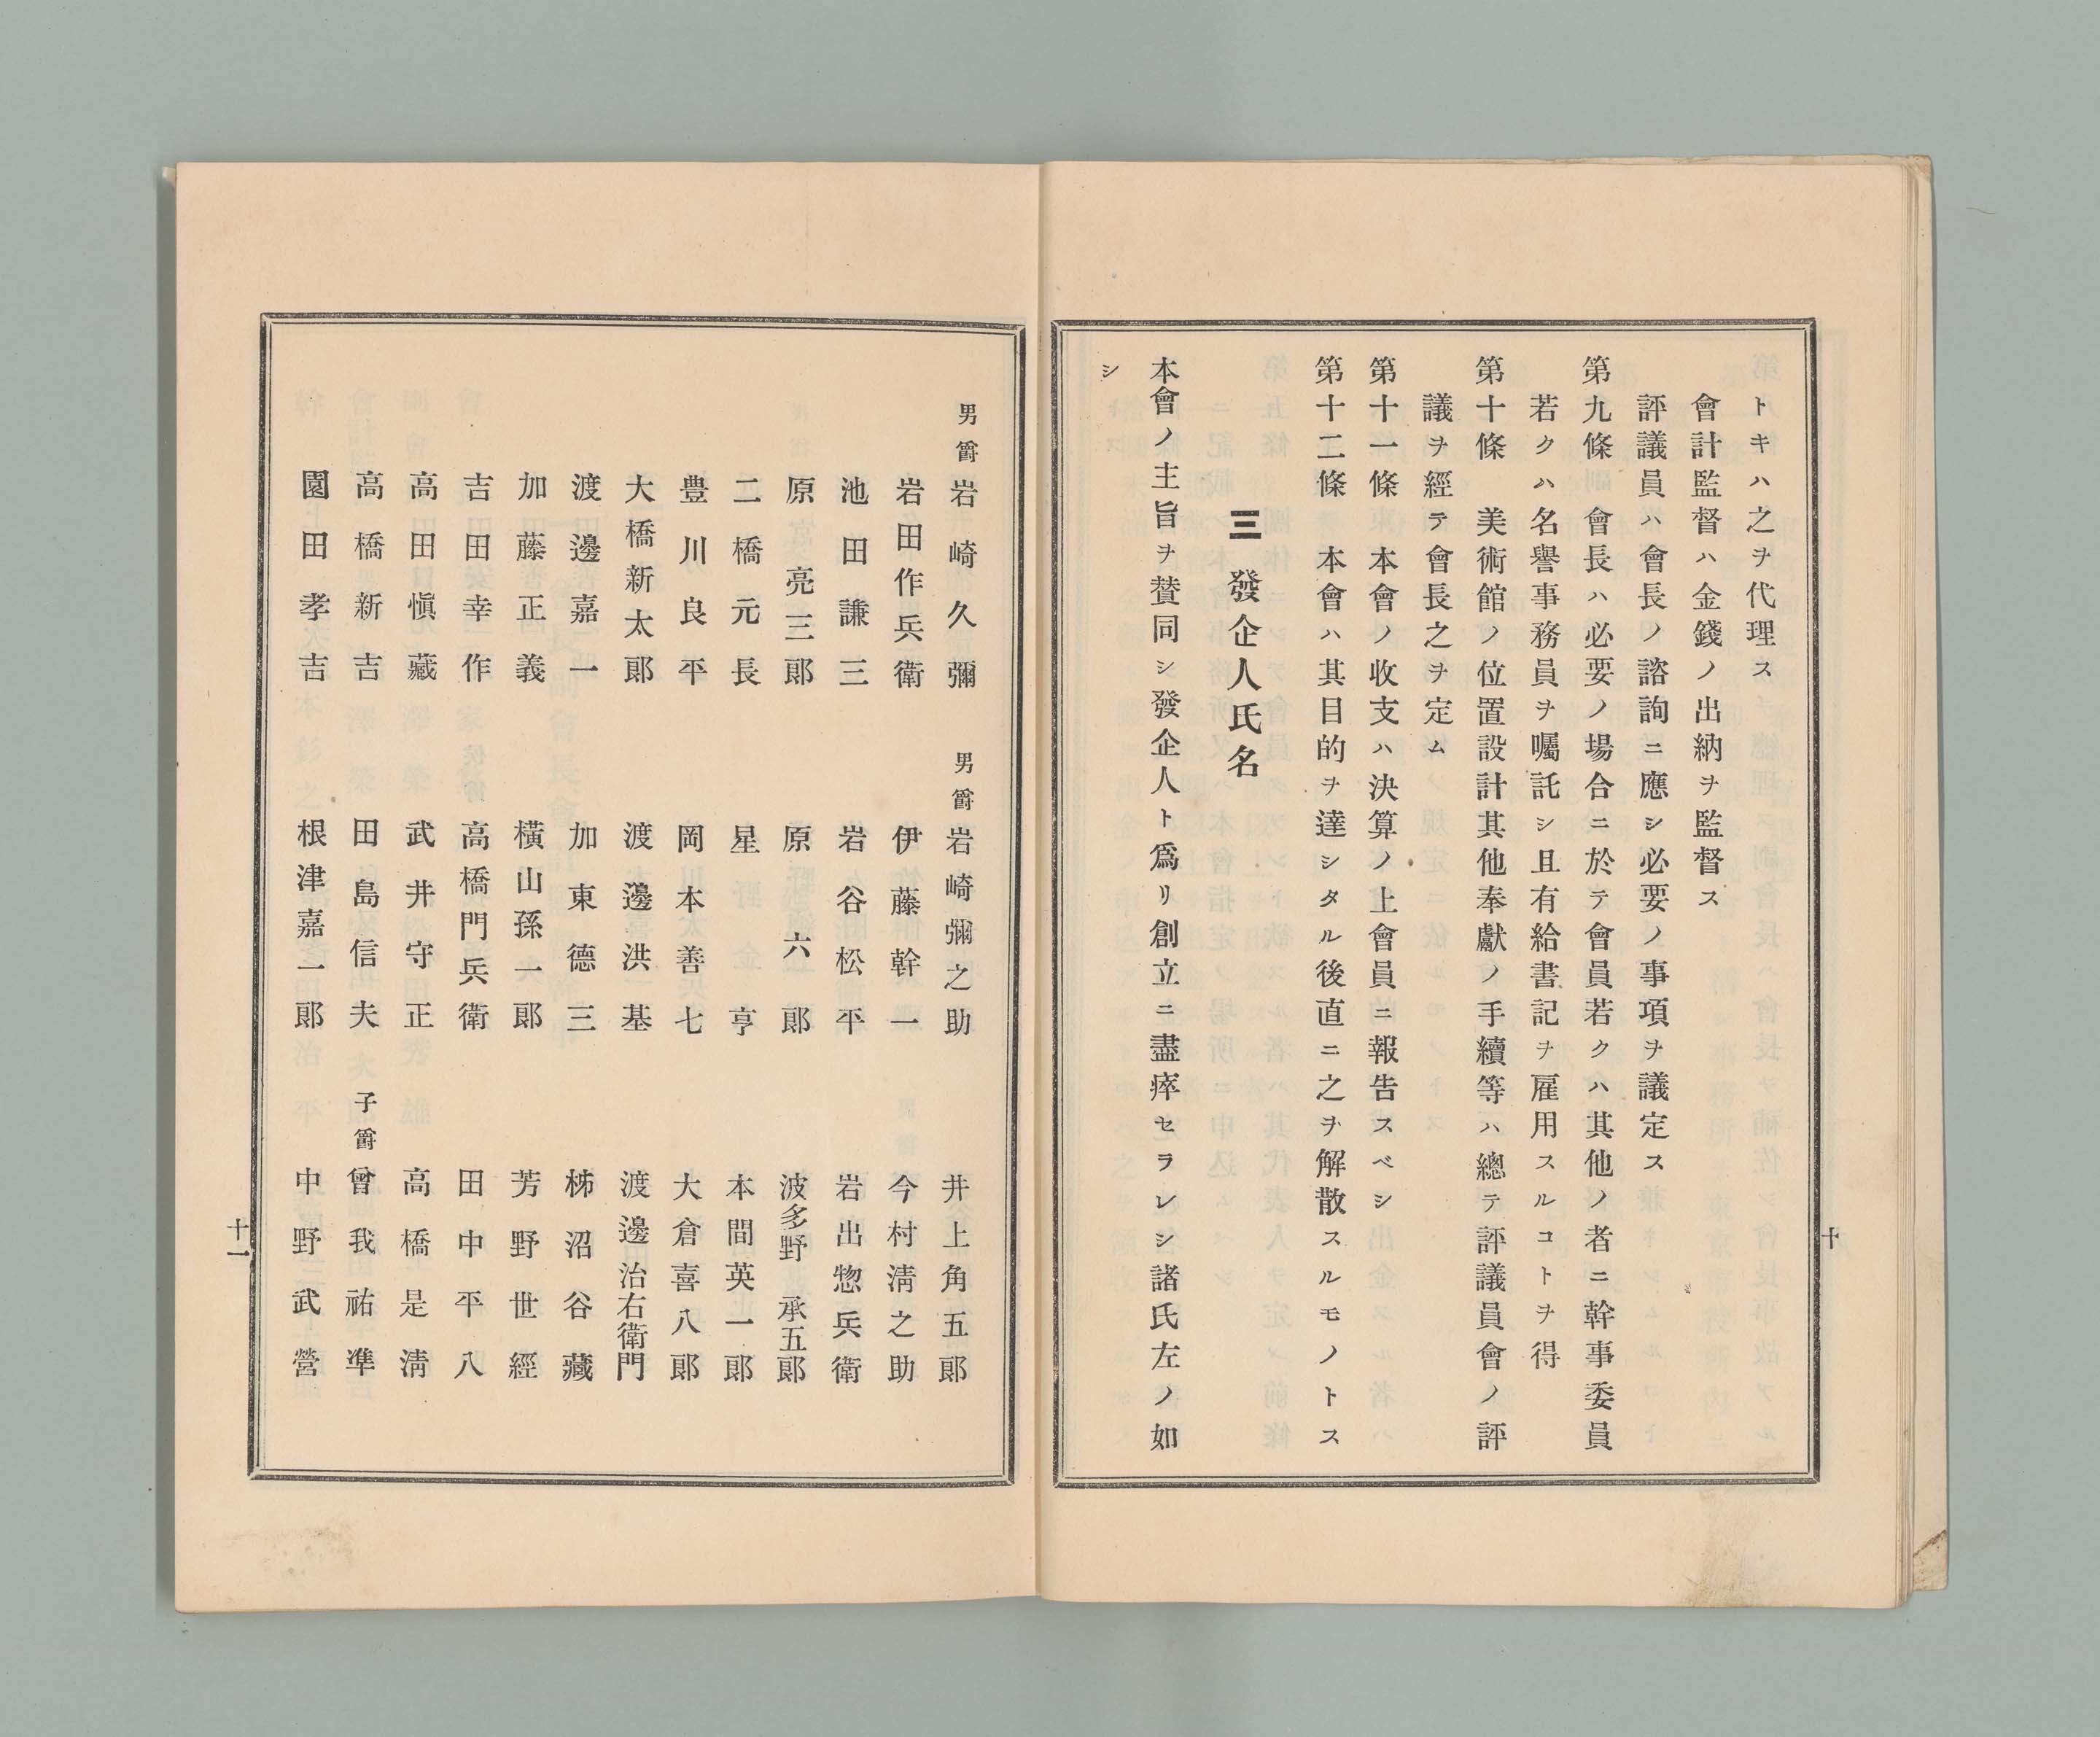 トキハ之ヲ代理ス
會計監督ハ金錢ノ出納ヲ監督ス
評議員ハ會長ノ諮詢ニ應シ必要ノ事項ヲ議定ス
第九條　會長ハ必要ノ場合ニ於テ會員若クハ其他ノ者ニ幹事委員
若クハ名譽事務員ヲ囑託シ且有給書記ヲ雇用スルコトヲ得
第十條　美術館ノ位置設計其他奉獻ノ手續等ハ總テ評議員會ノ評
議ヲ經テ會長之ヲ定ム
第十一條　本會ノ收支ハ決算ノ上會員ニ報告スベシ
第十二條　本會ハ其目的ヲ達シタル後直ニ之ヲ解散スルモノトス
三　發企人氏名
本會ノ主旨ヲ賛同シ發企人ト爲リ創立ニ盡瘁セラレシ諸氏左ノ如
シ
十
男爵 岩崎久彌　男爵 岩崎彌之助　井上角五郎
岩田作兵衛　伊藤幹一　今村淸之助
池田謙三　岩谷松平　岩出惣兵衛
原亮三郎　原六郎　波多野承五郎
二橋元長　星野亨　本間英一郎
豊川良平　岡本善七　大倉喜八郎
大橋新太郎　渡邊洪基　渡邊治右衛門
渡邊嘉一　加東德三　柿沼谷藏
加藤正義　横山孫一郎　芳野世經
吉田幸作　高橋門兵衛　田中平八
高田愼藏　武井守正　高橋是淸
高橋新吉　田島信夫　子爵 曾我祐凖
園田孝吉　根津嘉一郎　中野武營
十一